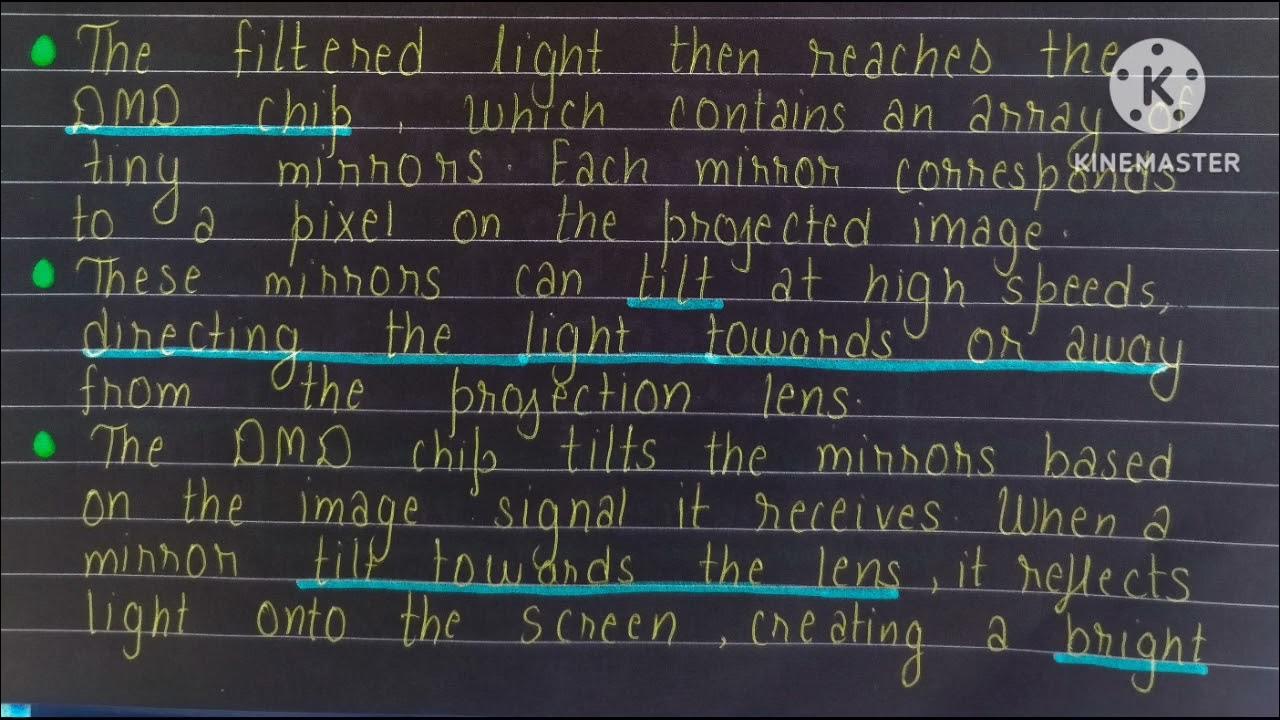 The filtered light then reaches the
DMD chip, which contains an array of
tiny mirrors. Each mirror corresponds
to a pixel on the projected image.
These mirrors can tilt at high speeds,
directing the light towards or away
from the projection lens.
The DMD chip tilts the mirrors based
on the image signal it receives. When a
mirror tilt towards the lens, it reflects
light onto the screen, creating a bright
K
KINEMASTER